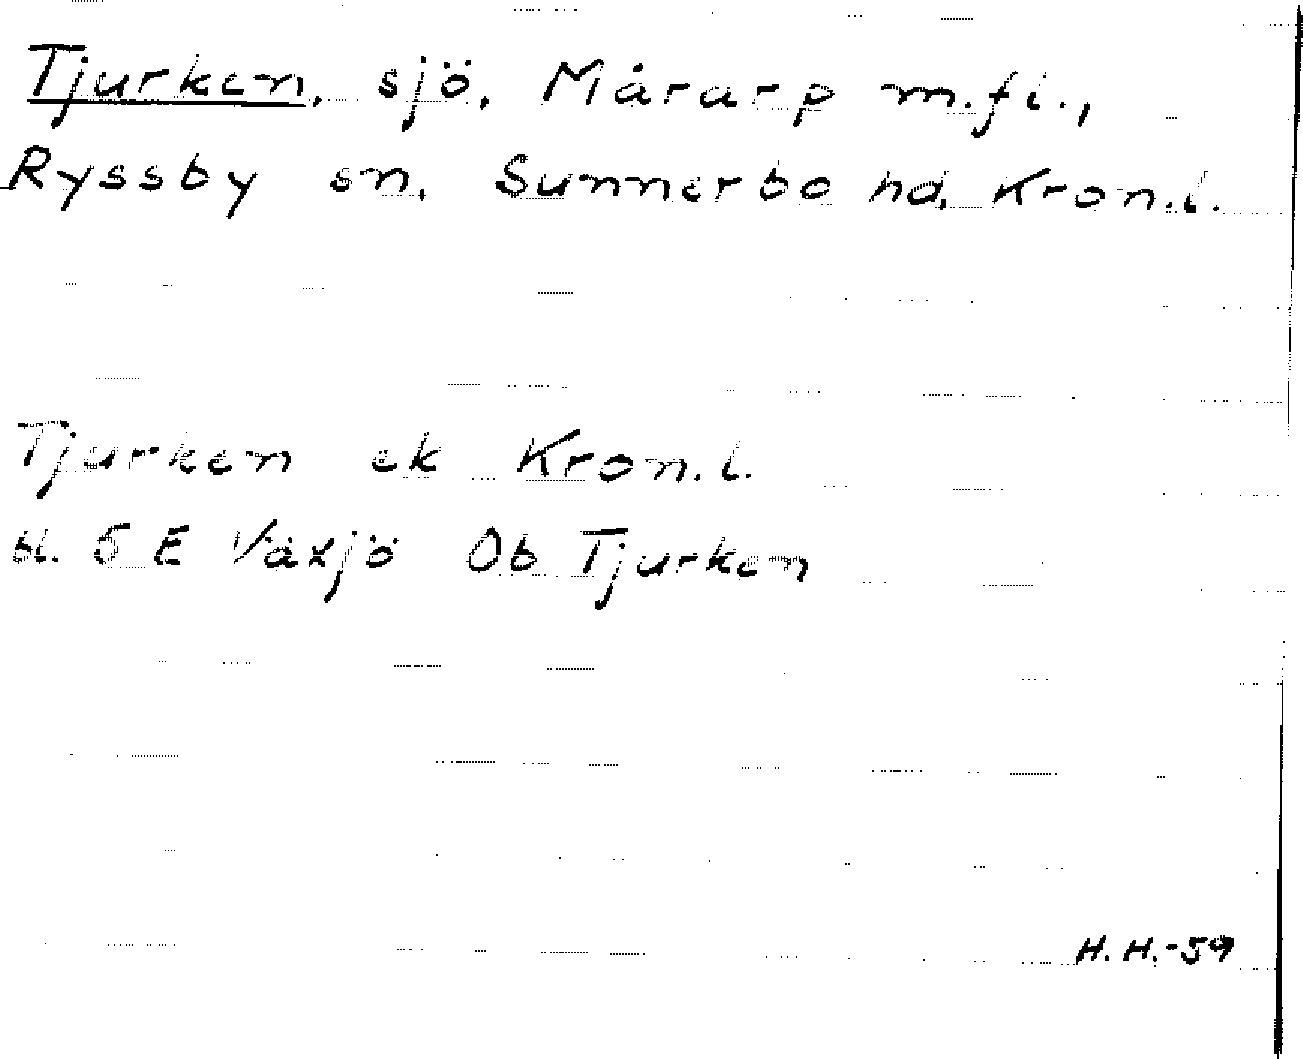 Tjurken, sjö, Mårarp m.fl.,
Ryssby sn, Sunnerbo hd, Kron.l.
Tjurken ek Kron.l.
bl. 5 E Växjö Ob Tjurken
H.H.-59